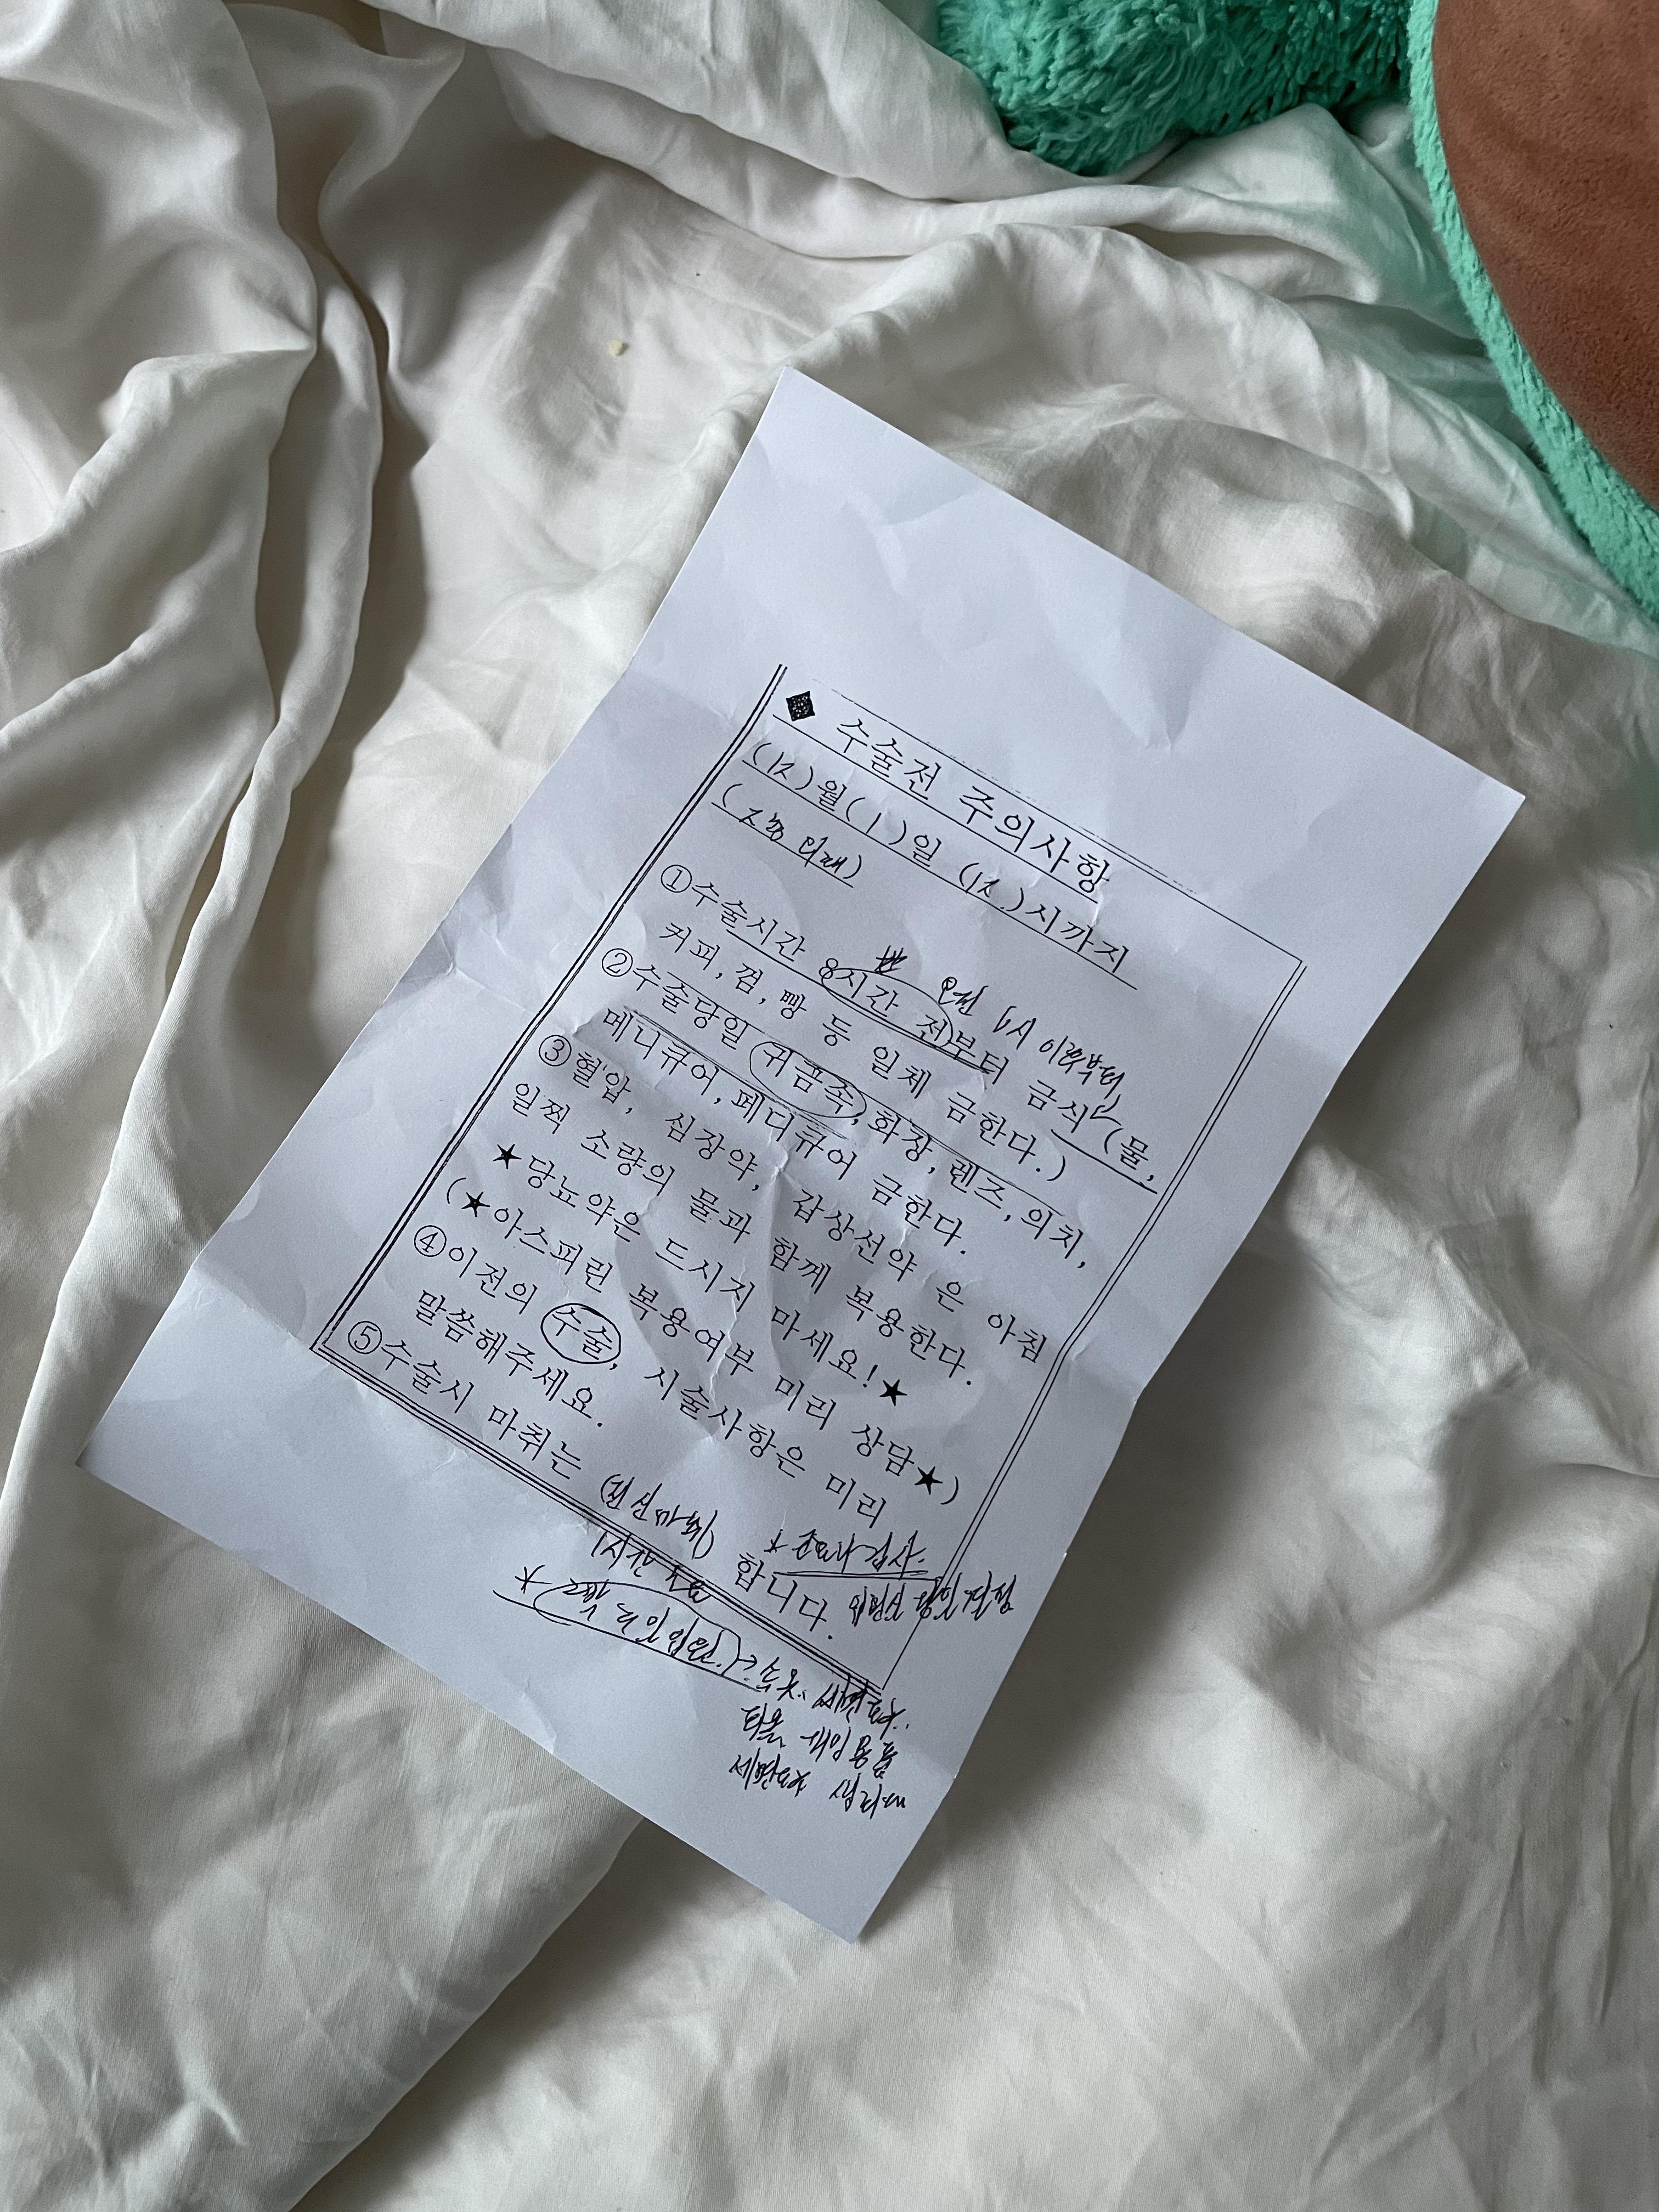 ◆ 수술전 주의사항
(12)월(1)일 (12)시까지
(지층 외래)
오전 6시 이후부터
①수술시간 8시간 전부터 금식(물,
커피, 껌, 빵 등 일체 금한다.)
②수술당일 귀금속, 화장, 렌즈, 의치,
메니큐어, 페디큐어 금한다.
③혈압, 심장약, 갑상선약 은 아침
일찍 소량의 물과 함께 복용한다.
★당뇨약은 드시지 마세요!★
(★아스피린 복용여부 미리 상담★)
④이전의 수술, 시술사항은 미리
말씀해주세요.
*초음파 검사.
⑤수술시 마취는 (전신마취) 합니다.
1시간 소요
개인용품
세면도구